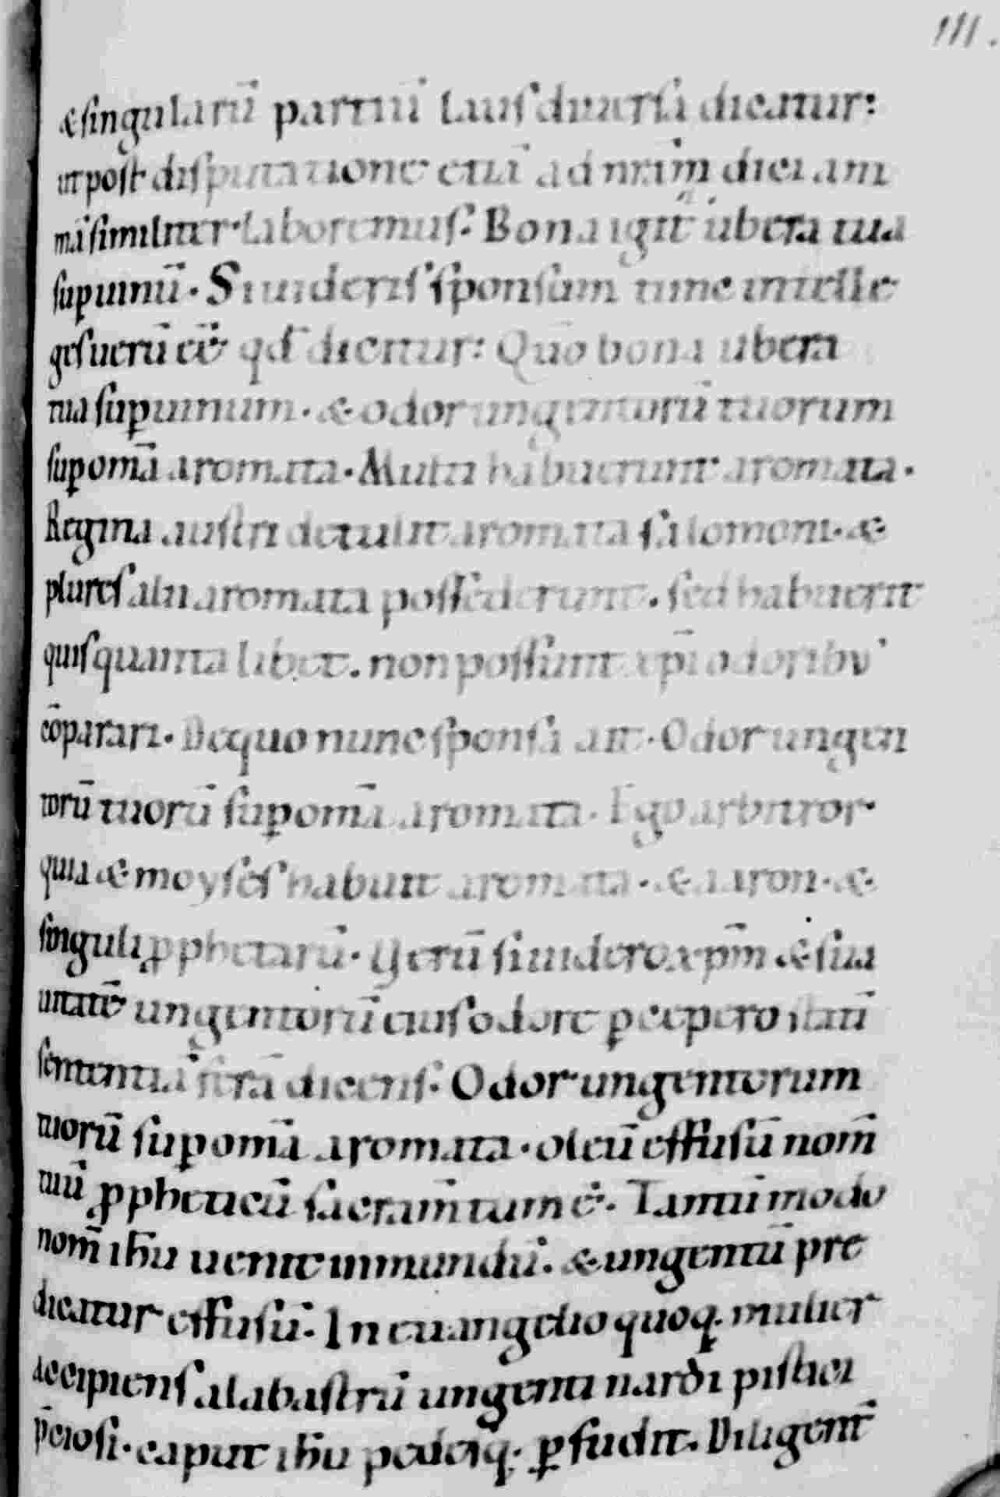 111.
& singularū partiū laus diuersa dicatur:
ut post disputatione etiā ad nrām dieī am
mā similiter laboremus. Bona igit ubera tua
sup uinū. Si uideris sponsam tunc intelle
ges uerū eē qd dicitur: Quō bona ubera
tua sup uinum. & odor ungentorū tuorum
sup omīa aromata. Multi habuerunt aromata.
Regina austri detulit aromata salomoni. &
plures alii aromata possederunt. sed habuerit
quis quanta libet. non possunt xp̄i odorib;
cōparari. De quo nunc sponsa ait. Odor ungen
torū tuorū sup omīa aromata. Ego arbitror
quia & moyses habuit aromata. & aaron. &
singuli pphetarū. Uerū si uidero xp̄m & sua
uitatē ungentorū eius odore p cepero statī
sententiā ferā dicens. Odor ungentorum
tuorū sup omīa aromata. oleū effusū nom̄
tuū ppheticū sacram̄tum ē. Tantū modo
nom̄ ih̄u uenit in mundū. & ungentū pre
dicatur effusū. In euangelio quoq. mulier
accipiens alabastrū ungenti nardi pistici
p̄ciosi. caput ih̄u pedesq. pfudit. Diligent̄